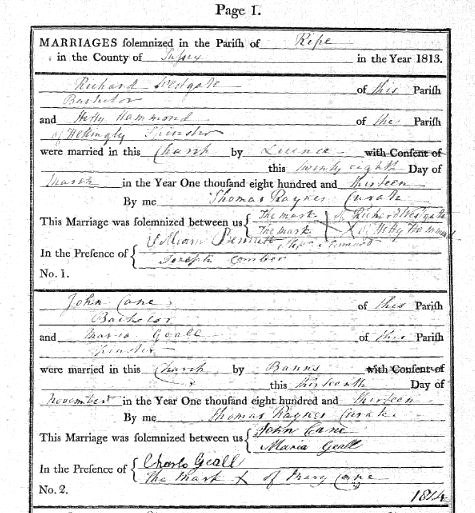 Page 1.
MARRIAGES solemnized in the Parish of Ripe
in the County of Sussex in the Year 1813.
Richard of this Parish
Bachelor
and Hammond of the Parish
of Hellingly Spinster
were married in this Church by Licence with Consent of
this twenty eighth Day of
March in the Year One thousand eight hundred and thirteen
By me Thomas Raynes Curate
This Marriage was solemnized between us { The mark X of Richard
The mark X of Hammond
In the Presence of { William Bennett
Joseph Comber
No. 1.
John Cane of this Parish
Bachelor
and Maria Geall of this Parish
Spinster
were married in this Church by Banns with Consent of
this Day of
November in the Year One thousand eight hundred and thirteen
By me Thomas Raynes Curate
This Marriage was solemnized between us { John Cane
Maria Geall
In the Presence of { Charles Geall
The Mark X of Mary Cane
No. 2.
1814